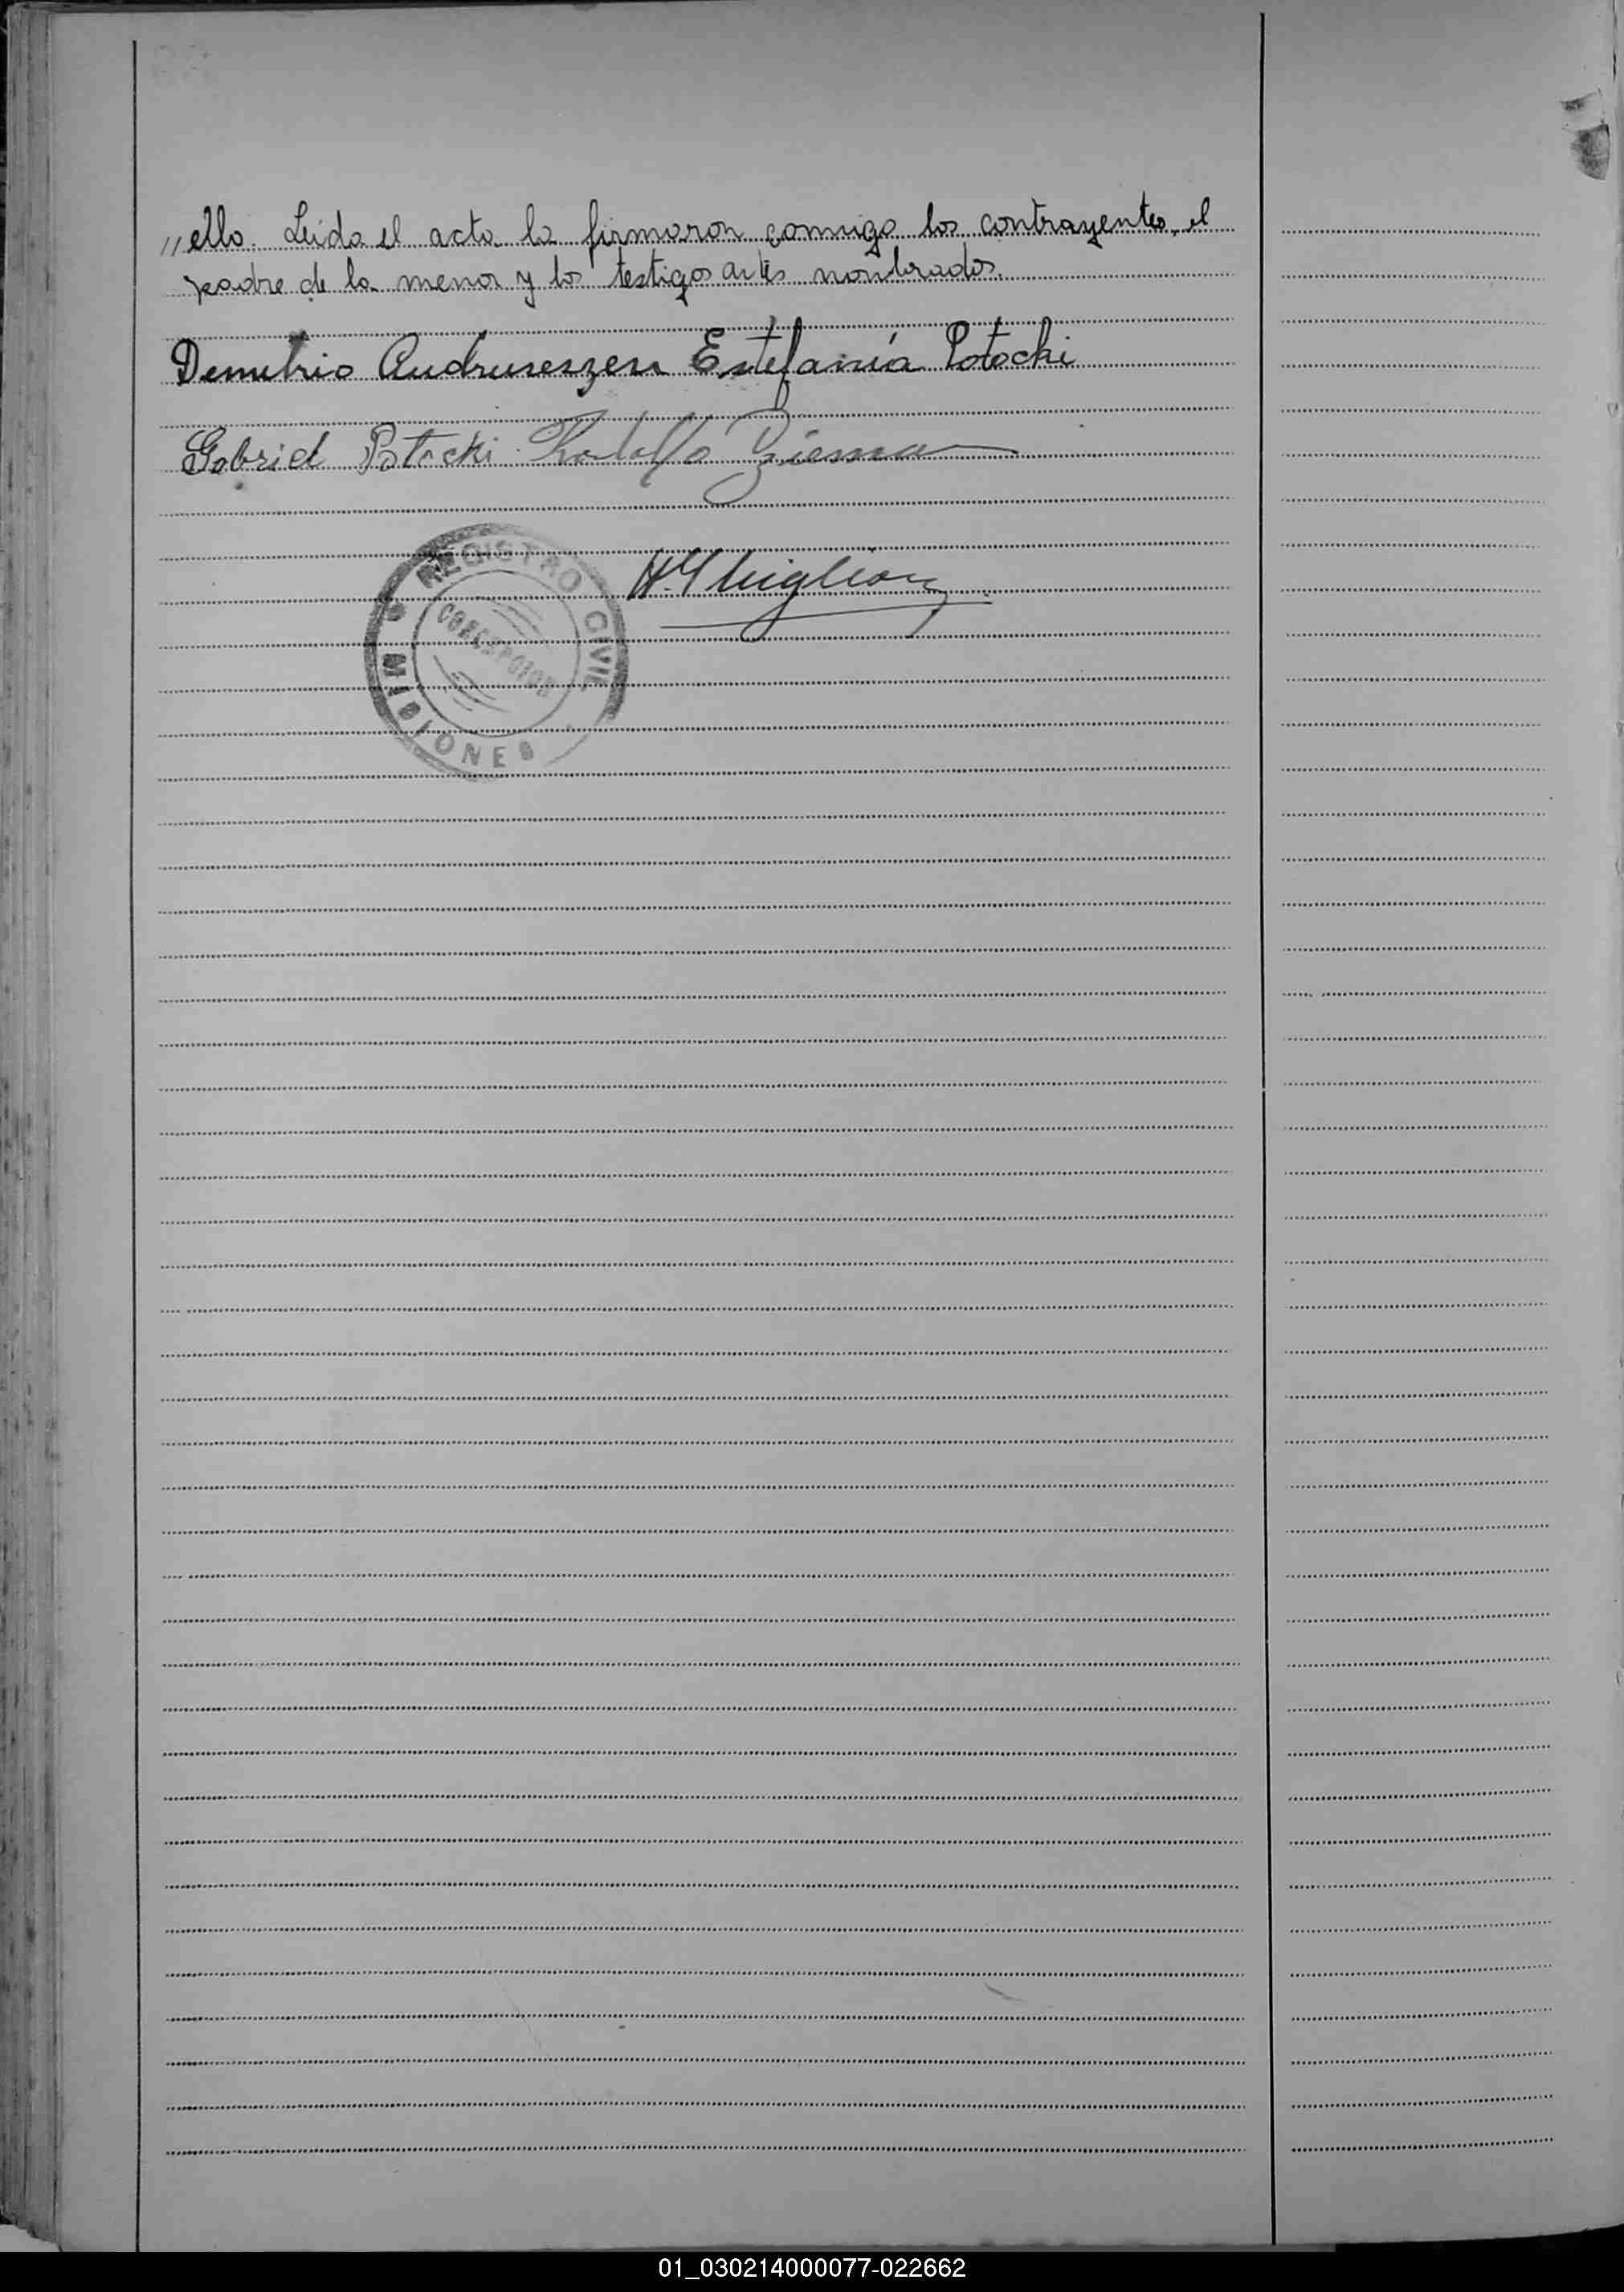 „ello. Leida el acta la firmaron comigo los contrayentes, el
padre de la menor y los testigos antes nombrados.
Demetrio Andrusezzen Estefanía Potocki
Gabriel Potocki Rodolfo
H. Ghiglione
REGISTRO CIVIL
CONCEPCION
MISIONES
01_030214000077-022662